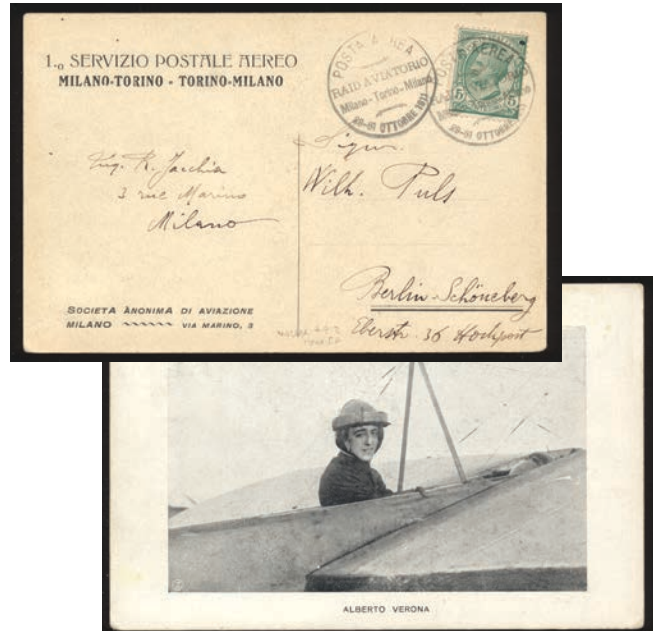 1.o SERVIZIO POSTALE AEREO
MILANO-TORINO - TORINO-MILANO
POSTA AEREA
RAID AVIATORIO
Milano-Torino-Milano
29-31 OTTOBRE 1911
POSTA AEREA
RAID
29-31 OTTOBRE
5 5
Ing. R. Jacchia
3 rue Marino
Milano
Signor.
Wilh. Puls
Berlin-Schöneberg
Eberstr. 36 Hochpart
SOCIETA ANONIMA DI AVIAZIONE
MILANO VIA MARINO, 3
ALBERTO VERONA